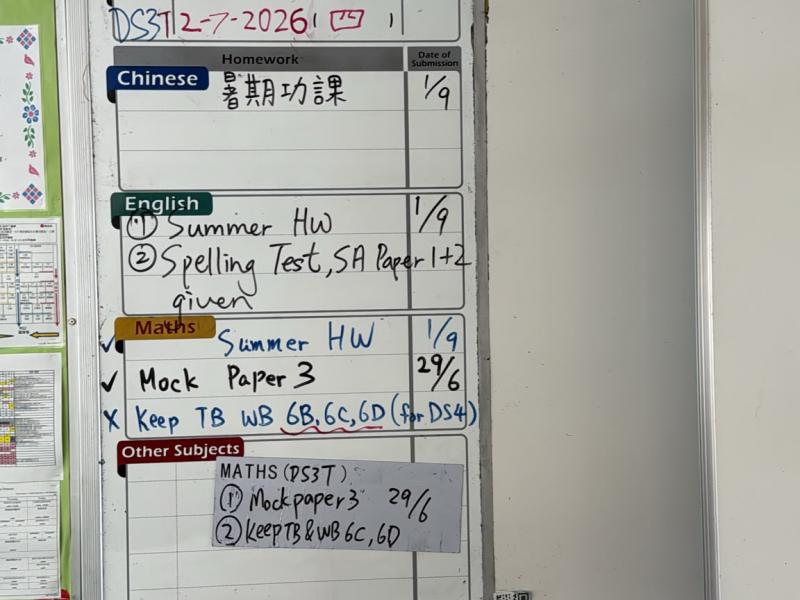 DS3T 2-7-2026 (四)
Homework
Date of Submission
Chinese
暑期功課 1/9
English
① Summer HW 1/9
② Spelling Test, SA Paper 1+2
given
Maths
✓ Summer HW 1/9
✓ Mock Paper 3 29/6
X Keep TB WB 6B, 6C, 6D (for DS4)
Other Subjects
MATHS (DS3T)
① Mock paper 3 29/6
② Keep TB & WB 6C, 6D